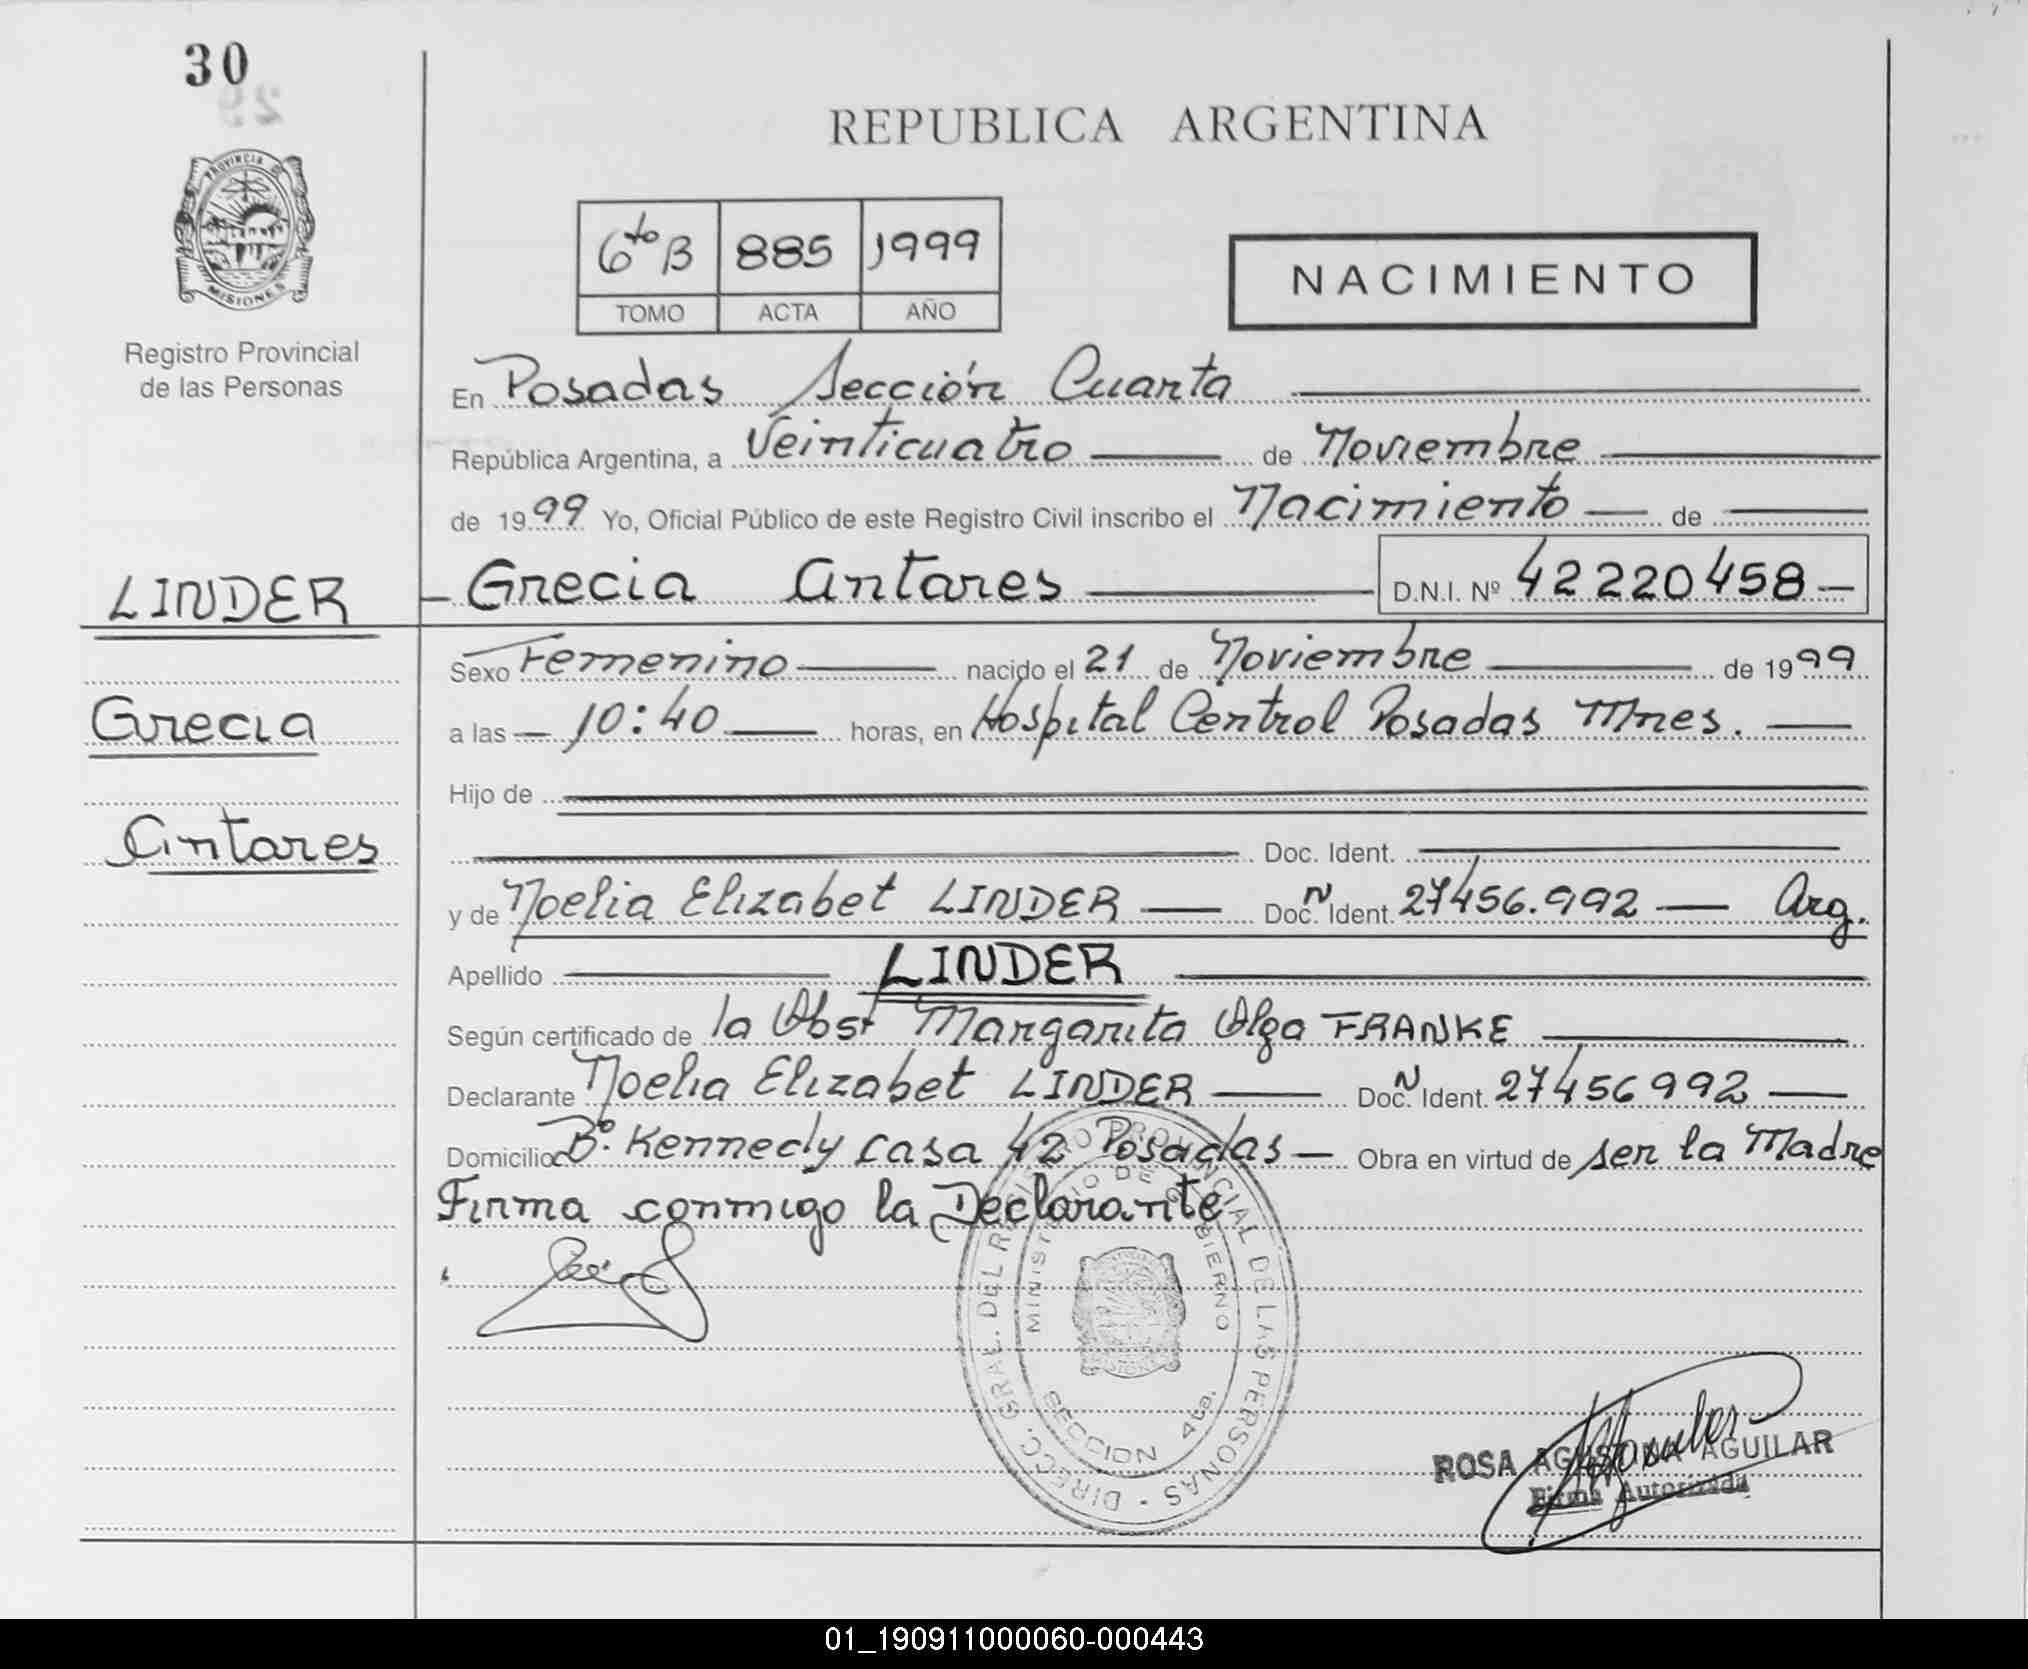 30
29
PROVINCIA DE
MISIONES
Registro Provincial
de las Personas
REPUBLICA ARGENTINA
6to B 885 1999
TOMO ACTA AÑO
NACIMIENTO
En Posadas Sección Cuarta
República Argentina, a Veinticuatro de Noviembre
de 1999 Yo, Oficial Público de este Registro Civil inscribo el Nacimiento de
LINDER
Grecia Antares D.N.I. Nº 42220458
Sexo Femenino nacido el 21 de Noviembre de 1999
Grecia
a las 10:40 horas, en Hospital Central Posadas Mnes.
Hijo de
Antares
Doc. Ident.
y de Noelia Elizabet LINDER Doc. N Ident. 27456.992 Arg.
Apellido LINDER
Según certificado de la Obst Margarita Olga FRANKE
Declarante Noelia Elizabet LINDER Doc. N Ident. 27456992
Domicilio Bº. Kennedy casa 42 Posadas Obra en virtud de ser la Madre
Firma conmigo la Declarante
DIRECC. GRAL. DEL REGISTRO PROVINCIAL DE LAS PERSONAS
MINISTERIO DE GOBIERNO
SECCION 4ta.
ROSA AGUSTINA AGUILAR
Firma Autorizada
01_190911000060-000443